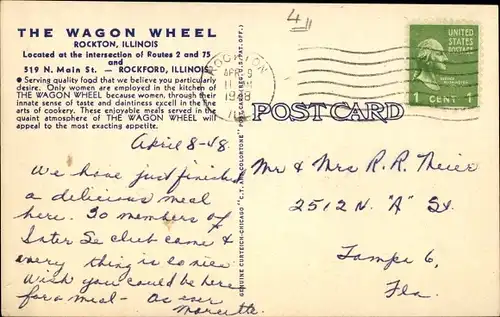 THE WAGON WHEEL
ROCKTON, ILLINOIS
Located at the intersection of Routes 2 and 75
and
519 N. Main St. — ROCKFORD, ILLINOIS
● Serving quality food that we believe you particularly
desire. Only women are employed in the kitchen of
THE WAGON WHEEL because women, through their
innate sense of taste and daintiness excell in the fine
arts of cookery. These enjoyable meals served in the
quaint atmosphere of THE WAGON WHEEL will
appeal to the most exacting appetite.
April 8-48.
We have just finished
a delicious meal
here. 30 members of
Inter Se club came &
every thing is so nice
Wish you could be here
for a meal - as ever
Marcette.
GENUINE CURTEICH-CHICAGO "C.T. ART-COLORTONE" POST CARD (REG. U.S. PAT. OFF.)
4
ROCKTON
APR 9
1948
ILL.
UNITED
STATES
POSTAGE
CENT 1
POST CARD
Mr & Mrs R. R. Meier
2512 N. "A" St.
Tampa 6,
Fla.